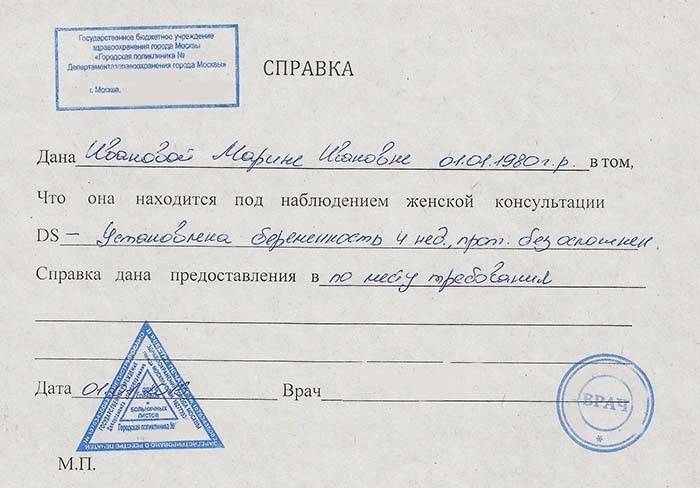 Государственное бюджетное учреждение
здравоохранения города Москвы
«Городская поликлиника №
Департамента здравоохранения города Москвы»
г. Москва,
СПРАВКА
Дана Ивановой Марине Ивановне 01.01.1980г.р. в том,
Что она находится под наблюдением женской консультации
DS – Установлена беременность 4 нед., прот. без осложнен.
Справка дана предоставления в по месту требования
Дата 01. Врач
ВРАЧ
больничных
листов
Городская поликлиника №
ЗАРЕГИСТРИРОВАНО В РЕЕСТРЕ ПЕЧАТЕЙ
М.П.